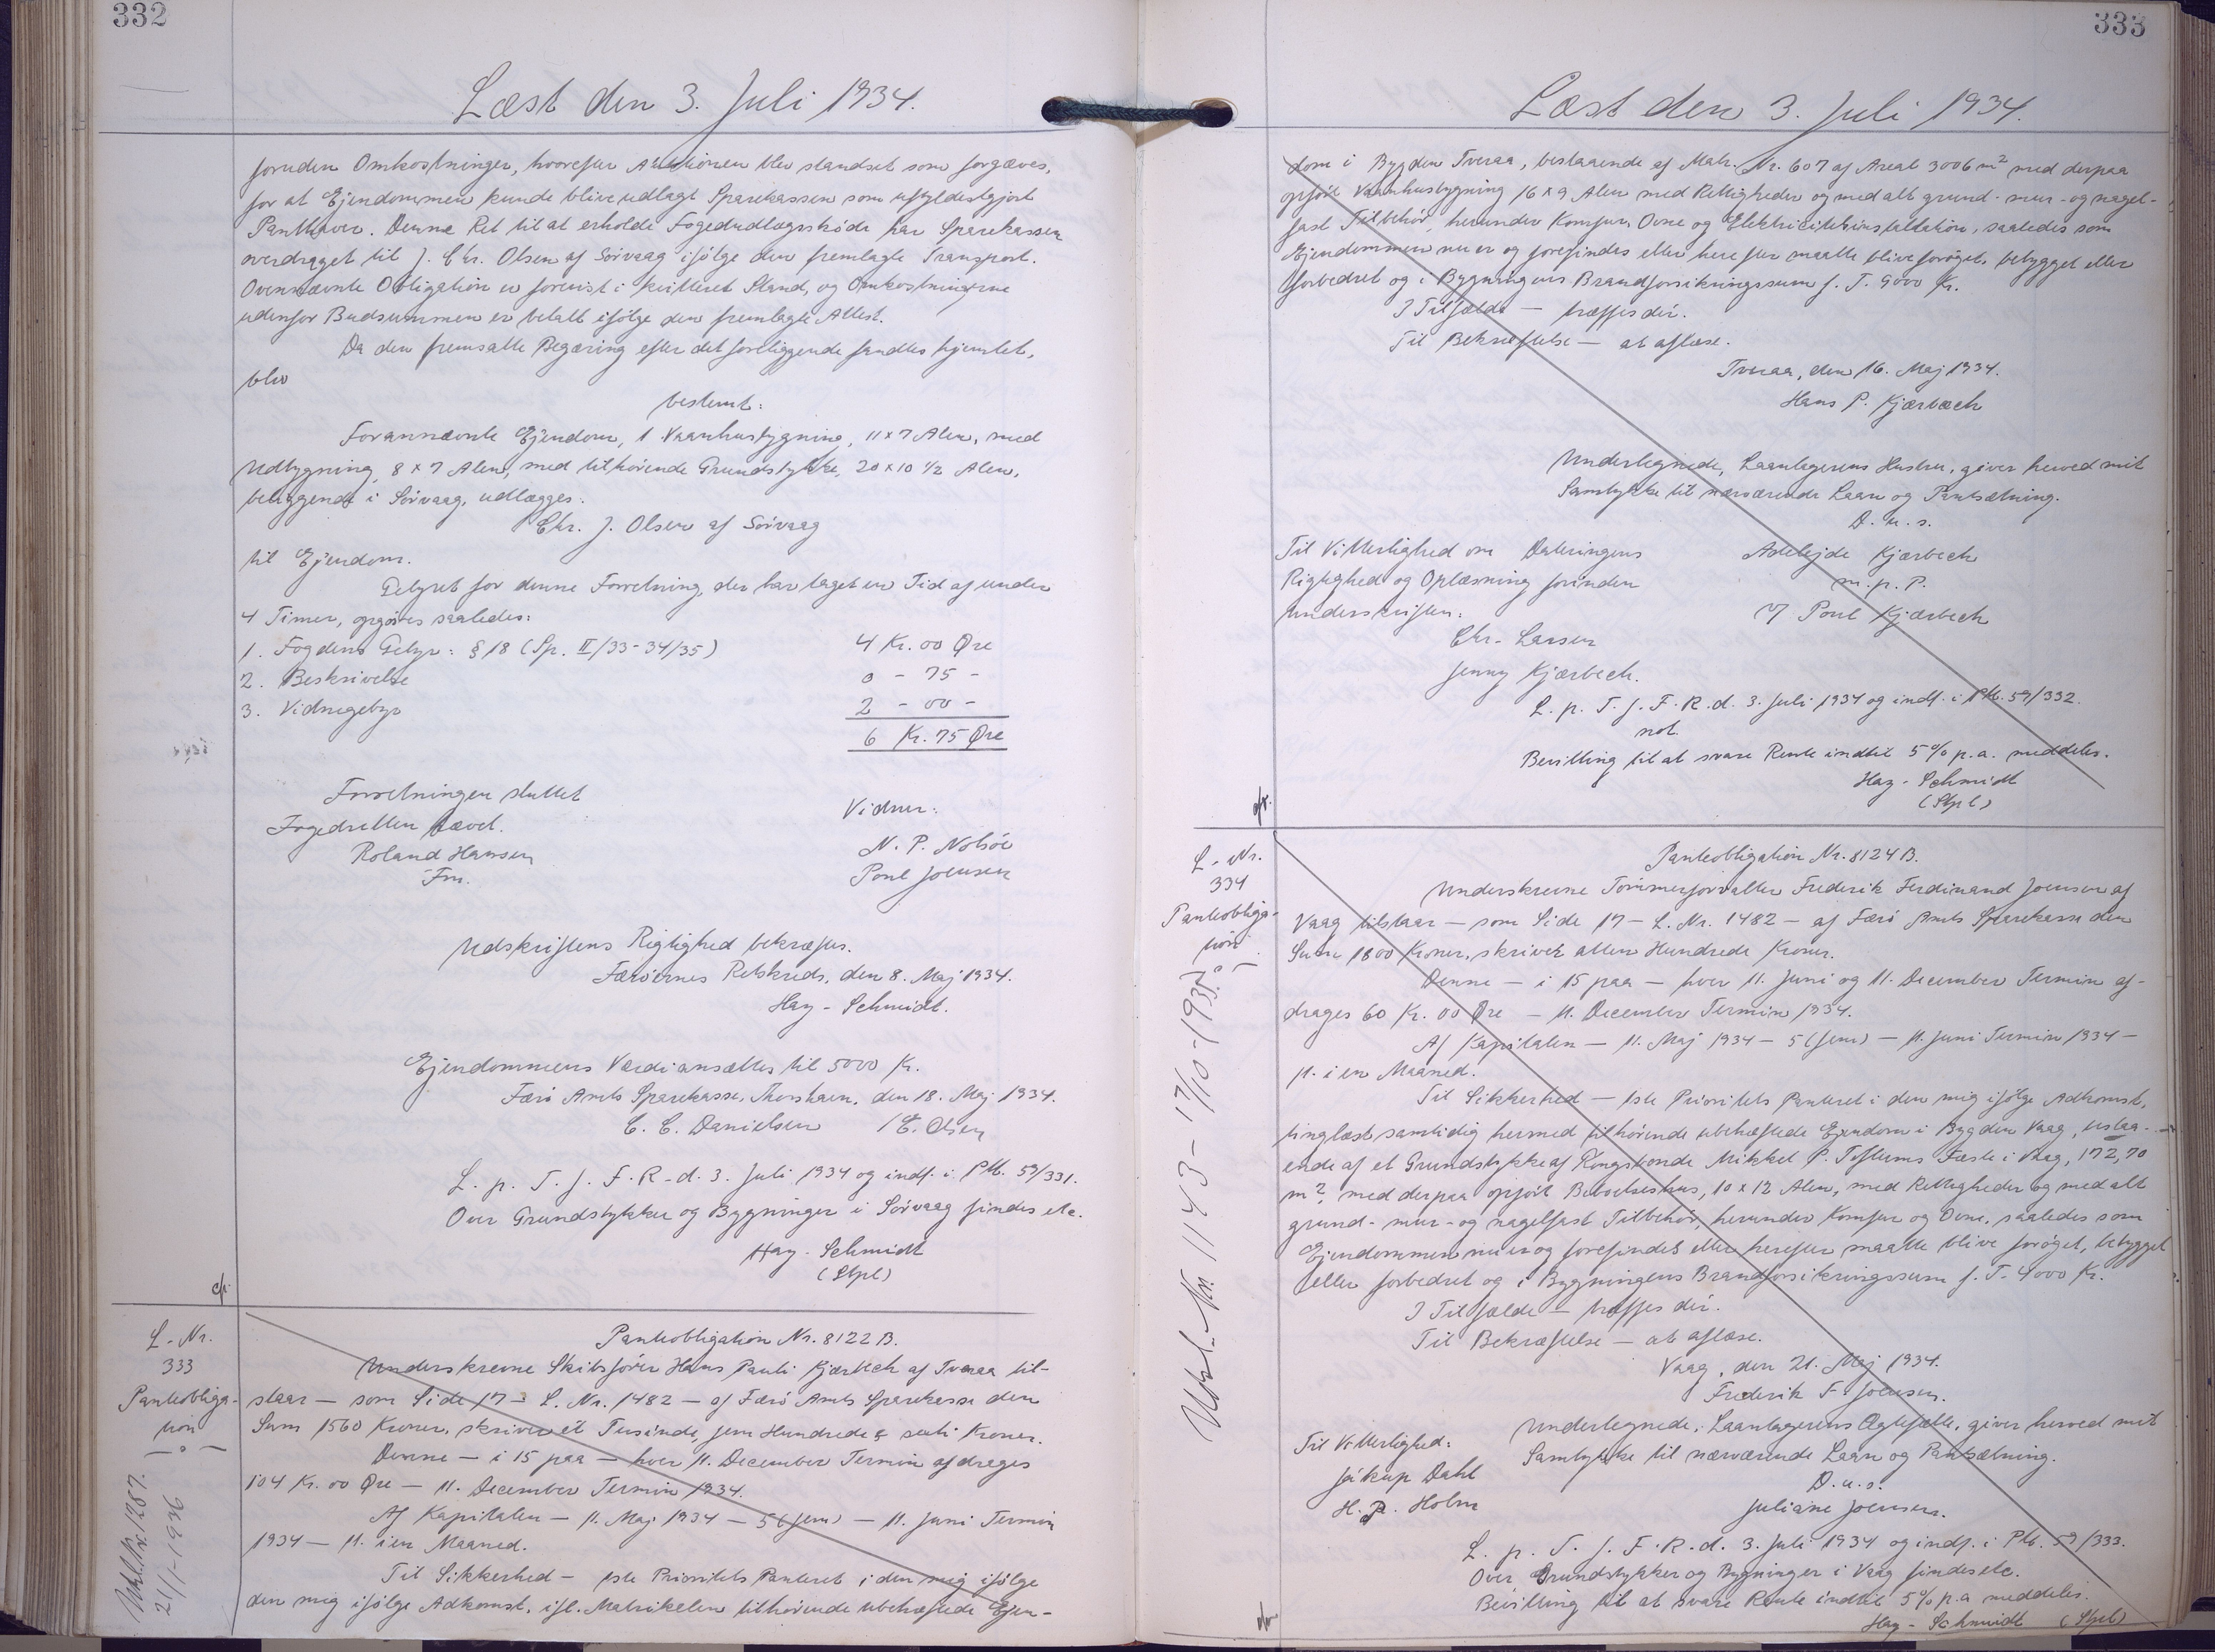 332
Læst den 3. Juli 1934.
foruden Omkostninger, hvorefter Auktionen blev standset som forgæves,
for at Ejendommen kunde blive udlagt Sparekassen som ufyldestgjort
Panthaver. Denne Ret til at erholde Fogedudlægsskøde har Sparekassen
overdraget til J. Chr. Olsen af Sörvaag ifølge den fremlagte Transport.
Ovennævnte Obligation er forevist i kvitteret Stand, og Omkostningerne
udenfor Budsummen er betalt ifølge den fremlagte Attest.
Da den fremsatte Begæring efter det foreliggende fandtes hjemlet,
blev
bestemt:
Forannævnte Ejendom, 1 Vaanhusbygning, 11 x 7 Alen, med
Udbygning, 8 x 7 Alen, med tilhørende Grundstykke, 20 x 10 1/2 Alen,
beliggende i Sörvaag, udlægges:
Chr. J. Olsen af Sörvaag
til Ejendom.
Gebyret for denne Forretning, der har taget en Tid af under
4 Timer, opgøres saaledes:
1. Fogdens Gebyr: § 18 (Sp. II/33-34/35) 4 Kr. 00 Øre
2. Beskrivelse 0 - 75 -
3. Vidnegebyr 2 - 00 -
6 Kr. 75 Øre
Forretningen sluttet
Fogedretten hævet.
Roland Hansen
Fm.
Vidner:
N. P. Nolsöe
Poul Joensen
Udskriftens Rigtighed bekræftes.
Færøernes Retskreds, den 8. Maj 1934.
Hay-Schmidt.
Ejendommens Værdi ansættes til 5000 Kr.
Færö Amts Sparekasse, Thorshavn, den 18. Maj 1934.
C. C. Danielsen /E. Olsen
L. p. T. f. F. R. d. 3. Juli 1934 og indf. i Ptb. 59/331.
Over Grundstykker og Bygninger i Sörvaag findes etc.
Hay-Schmidt
(Stpl)
cfr.
L.-Nr.
333
Panteobliga-
tion
Udsl. Nr. 1287.
21/1-1936
Panteobligation Nr. 8122 B.
Underskrevne Skibsfører Hans Pauli Kjærbech af Tveraa til-
staar — som Side 17 — L. Nr. 1482 — af Færö Amts Sparekasse den
Sum 1560 Kroner, skriver et Tusinde, fem Hundrede & seksti Kroner.
Denne — i 15 paa — hver 11. December Termin afdrages
104 Kr. 00 Øre — 11. December Termin 1934.
Af Kapitalen — 11. Maj 1934 — 5 (fem) — 11. Juni Termin
1934 — 11. i en Maaned.
Til Sikkerhed — 1ste Prioritets Panteret i den mig ifølge
den mig ifølge Adkomst, ifl. Matrikelen tilhørende ubehæftede Ejen-
333
Læst den 3. Juli 1934.
dom i Bygden Tveraa, bestaaende af Matr. Nr. 607 af Areal 3006 m² med derpaa
opført Vaanhusbygning 16 x 9 Alen med Rettigheder og med alt grund- mur- og nagel-
fast Tilbehør, herunder Komfur, Ovne og Elektricitetsinstallation, saaledes som
Ejendommen nu er og forefindes eller herefter maatte blive forøget, bebygget eller
forbedret og i Bygningens Brandforsikringssum f. T. 9000 Kr.
I Tilfælde — træffes dér.
Til Bekræftelse — at aflæse.
Tveraa, den 16. Maj 1934.
Hans P. Kjærbæch
Undertegnede, Laantagerens Hustru, giver herved mit
Samtykke til nærværende Laan og Pantsætning.
D. u. s.
Til Vitterlighed om Dateringens
Rigtighed og Oplæsning forinden
Underskriften:
Chr. Larsen
Jenny Kjærbech.
Adelejde Kjærbech
m. p. P.
v/ Poul Kjærbech
L. p. T. f. F. R. d. 3. Juli 1934 og indf. i Ptb. 59/332.
not.
Bevilling til at svare Rente indtil 5% p. a. meddeles.
Hay-Schmidt
(Stpl)
cfr.
L.-Nr.
334
Panteobliga-
tion
Udsl. Nr. 1143 - 17/10-1935
Panteobligation Nr. 8124 B.
Underskrevne Tömmerforvalter Frederik Ferdinand Joensen af
Vaag tilstaar — som Side 17 — L. Nr. 1482 — af Færö Amts Sparekasse den
Sum 1800 Kroner, skriver atten Hundrede Kroner.
Denne — i 15 paa — hver 11. Juni og 11. December Termin af-
drages 60 Kr. 00 Øre — 11. December Termin 1934.
Af Kapitalen — 11. Maj 1934 — 5 (fem) — 11. Juni Termin 1934 —
11. i en Maaned.
Til Sikkerhed — 1ste Prioritets Panteret i den mig ifølge Adkomst,
tinglæst samtidig hermed tilhørende ubehæftede Ejendom i Bygden Vaag, bestaa-
ende af et Grundstykke af Kongsbonde Mikkel P. Fæste i Vaag, 172,70
m², med derpaa opført Beboelseshus, 10 x 12 Alen, med Rettigheder og med alt
grund- mur- og nagelfast Tilbehør, herunder Komfur og Ovne, saaledes som
Ejendommen nu er og forefindes eller herefter maatte blive forøget, bebygget
eller forbedret og i Bygningens Brandforsikringssum f. T. 4000 Kr.
I Tilfælde — træffes dér.
Til Bekræftelse — at aflæse.
Vaag, den 21. Maj 1934.
Frederik F. Joensen.
Undertegnede, Laantagerens Ægtefælle, giver herved mit
Samtykke til nærværende Laan og Pantsætning.
D. u. s.
Juliane Joensen.
Til Vitterlighed:
Jákup Dahl
H. P. Holm
L. p. T. f. F. R. d. 3. Juli 1934 og indf. i Ptb. 59/333.
Over Grundstykker og Bygninger i Vaag findes etc.
Bevilling til at svare Rente indtil 5% p. a. meddeles.
Hay-Schmidt (Stpl)
cfr.